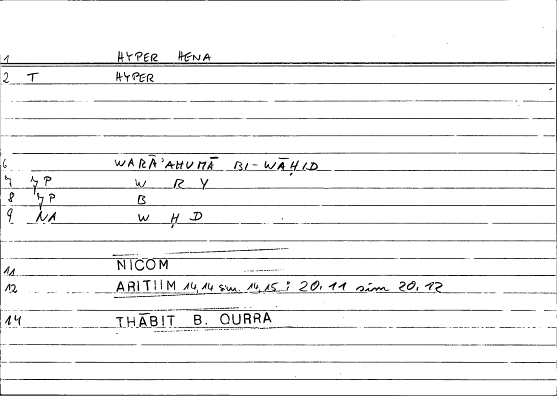 1 HYPER HENA
2 T HYPER
6 WARĀ'AHUMĀ BI-WĀḤID
7 ʒP W R Y
8 ʒP B
9 NA W Ḥ D
11 NICOM
12 ARITIIM 14,14 sim 14,15 ; 20,11 sim 20,12
14 THĀBIT B. QURRA